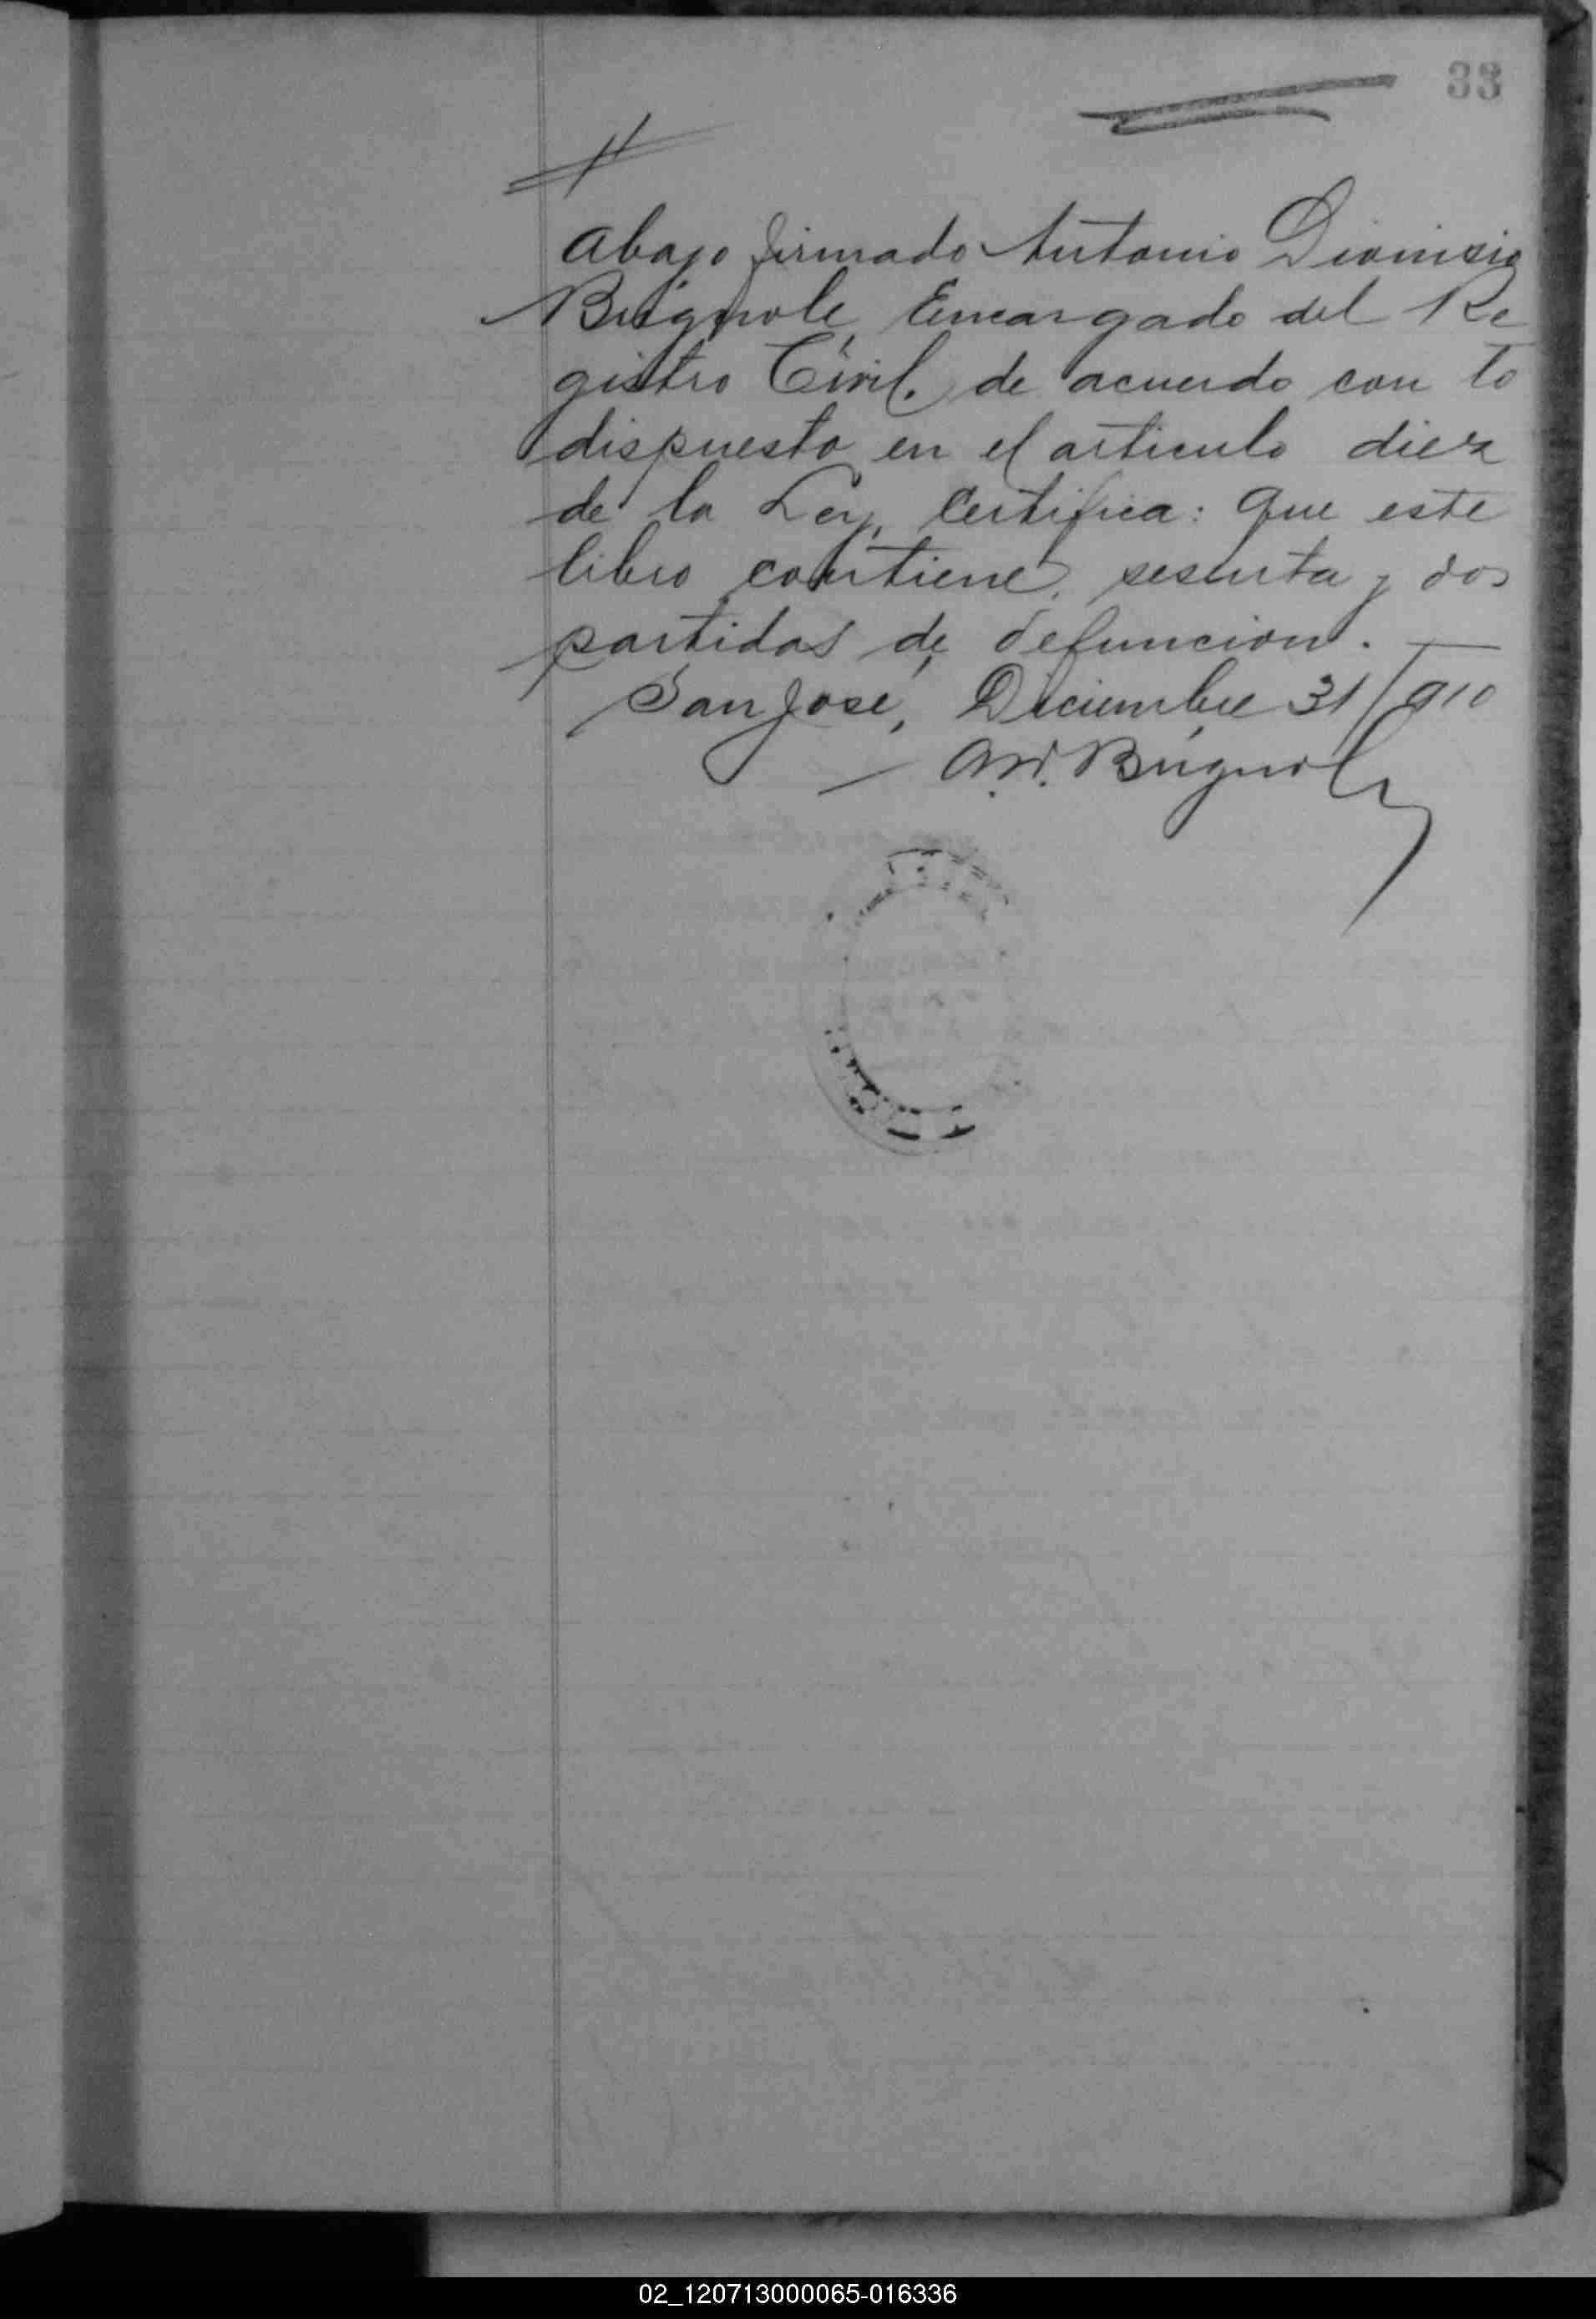 33
Abajo firmado Antonio Dionisio
Brignole, Encargado del Re
gistro Civil. de acuerdo con lo
dispuesto en el articulo diez
de la Ley, Certifica: que este
libro contiene, sesenta y dos
partidas de defuncion. —
San José, Diciembre 31/910
A.D. Brignole
02_120713000065-016336